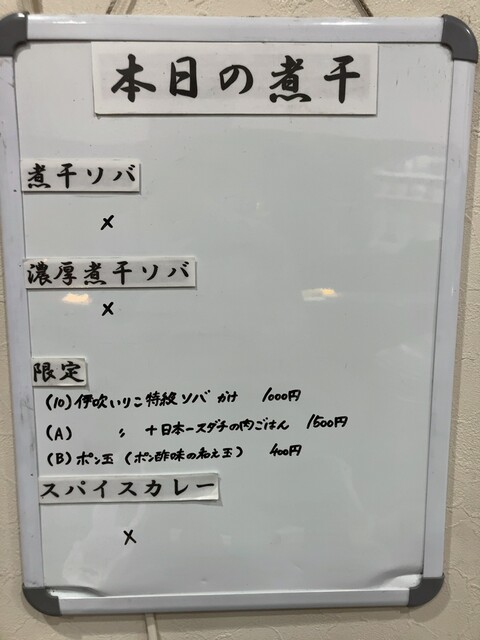 本日の煮干
煮干ソバ
×
濃厚煮干ソバ
×
限定
(10) 伊吹いりこ特級ソバ かけ 1000円
(A) 〃 +日本一スダチの肉ごはん 1500円
(B) ポン玉 (ポン酢味の和え玉) 400円
スパイスカレー
×